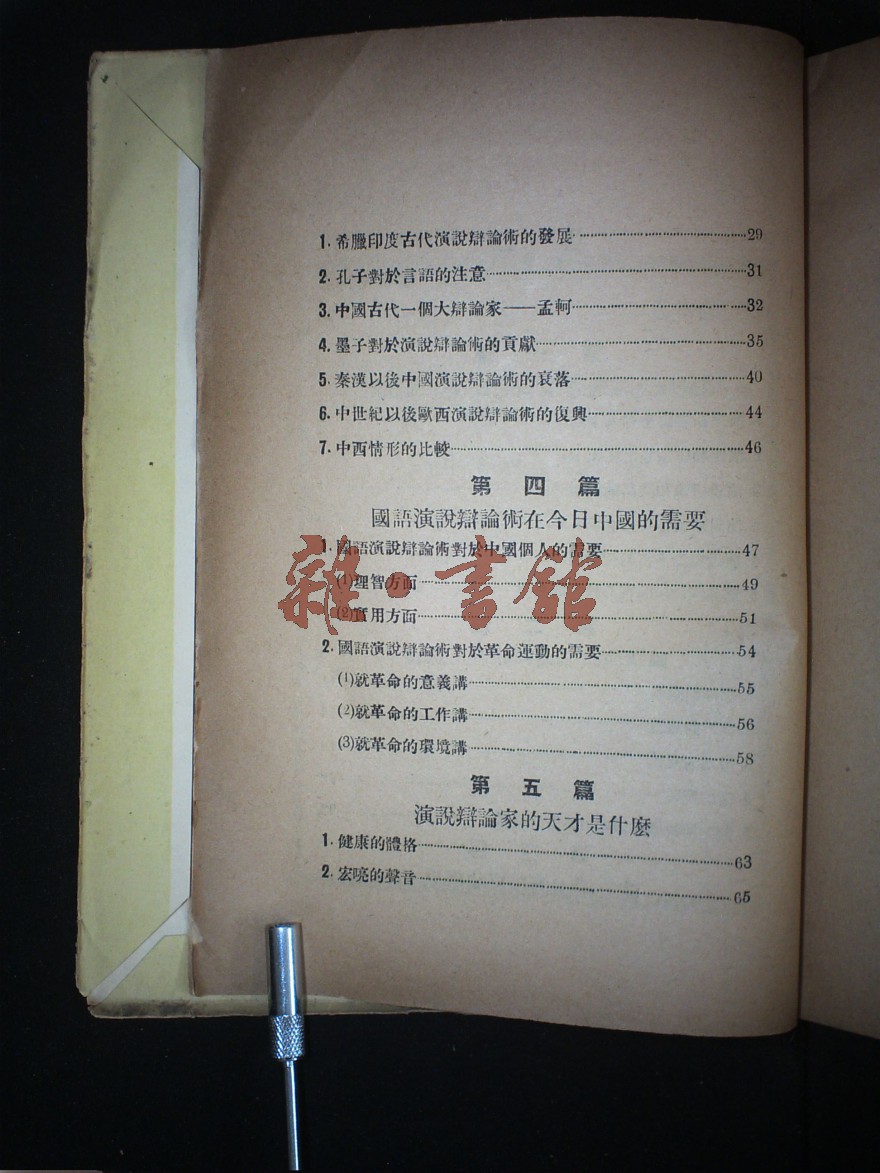 1. 希臘印度古代演說辯論術的發展…………29
2. 孔子對於言語的注意…………31
3. 中國古代一個大辯論家——孟軻…………32
4. 墨子對於演說辯論術的貢獻…………35
5. 秦漢以後中國演說辯論術的衰落…………40
6. 中世紀以後歐西演說辯論術的復興…………44
7. 中西情形的比較…………46
第四篇
國語演說辯論術在今日中國的需要
1. 國語演說辯論術對於中國個人的需要…………47
(1)理智方面…………49
(2)實用方面…………51
2. 國語演說辯論術對於革命運動的需要…………54
(1)就革命的意義講…………55
(2)就革命的工作講…………56
(3)就革命的環境講…………58
第五篇
演說辯論家的天才是什麼
1. 健康的體格…………63
2. 宏喨的聲音…………65
雜·書館